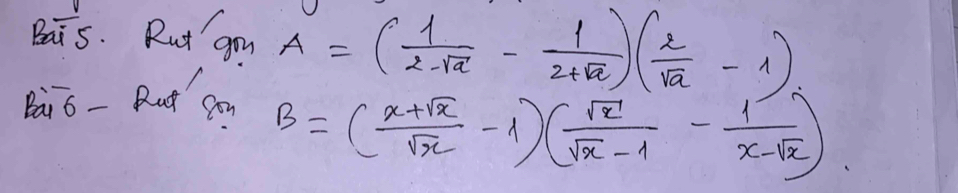 Bài 5. Rut' gọn A = (1/(2-√a) - 1/(2+√a))(2/√a - 1).
Bài 6 - Rut' gọn B = ((x+√x)/√x - 1)(√x/(√x-1) - 1/(x-√x)).